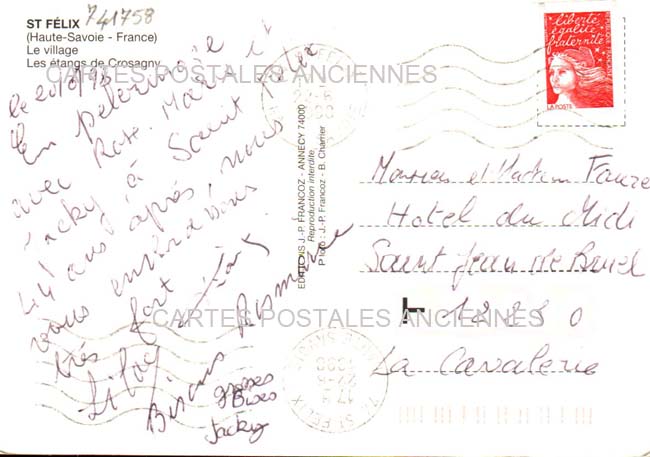 741758
ST FÉLIX
(Haute-Savoie - France)
Le village
Les étangs de Crosagny
CARTES POSTALES ANCIENNES
le 20/8/98
En pélerinage
avec Rose. Marie et
Jacky à Saint Félix
44 ans après, nous
vous embrassons
très fort
Bisous
grosses
Bises
Jacky
EDITIONS J.-P. FRANCOZ - ANNECY 74000
Reproduction interdite
Photo : J.-P. Francoz - B. Charrier
liberté
égalité
fraternité
LA POSTE
Monsieur et Madame
Hotel du Midi
Saint Jean du Bruel
12230
La Cavalerie
CARTES POSTALES ANCIENNES
ST FELIX